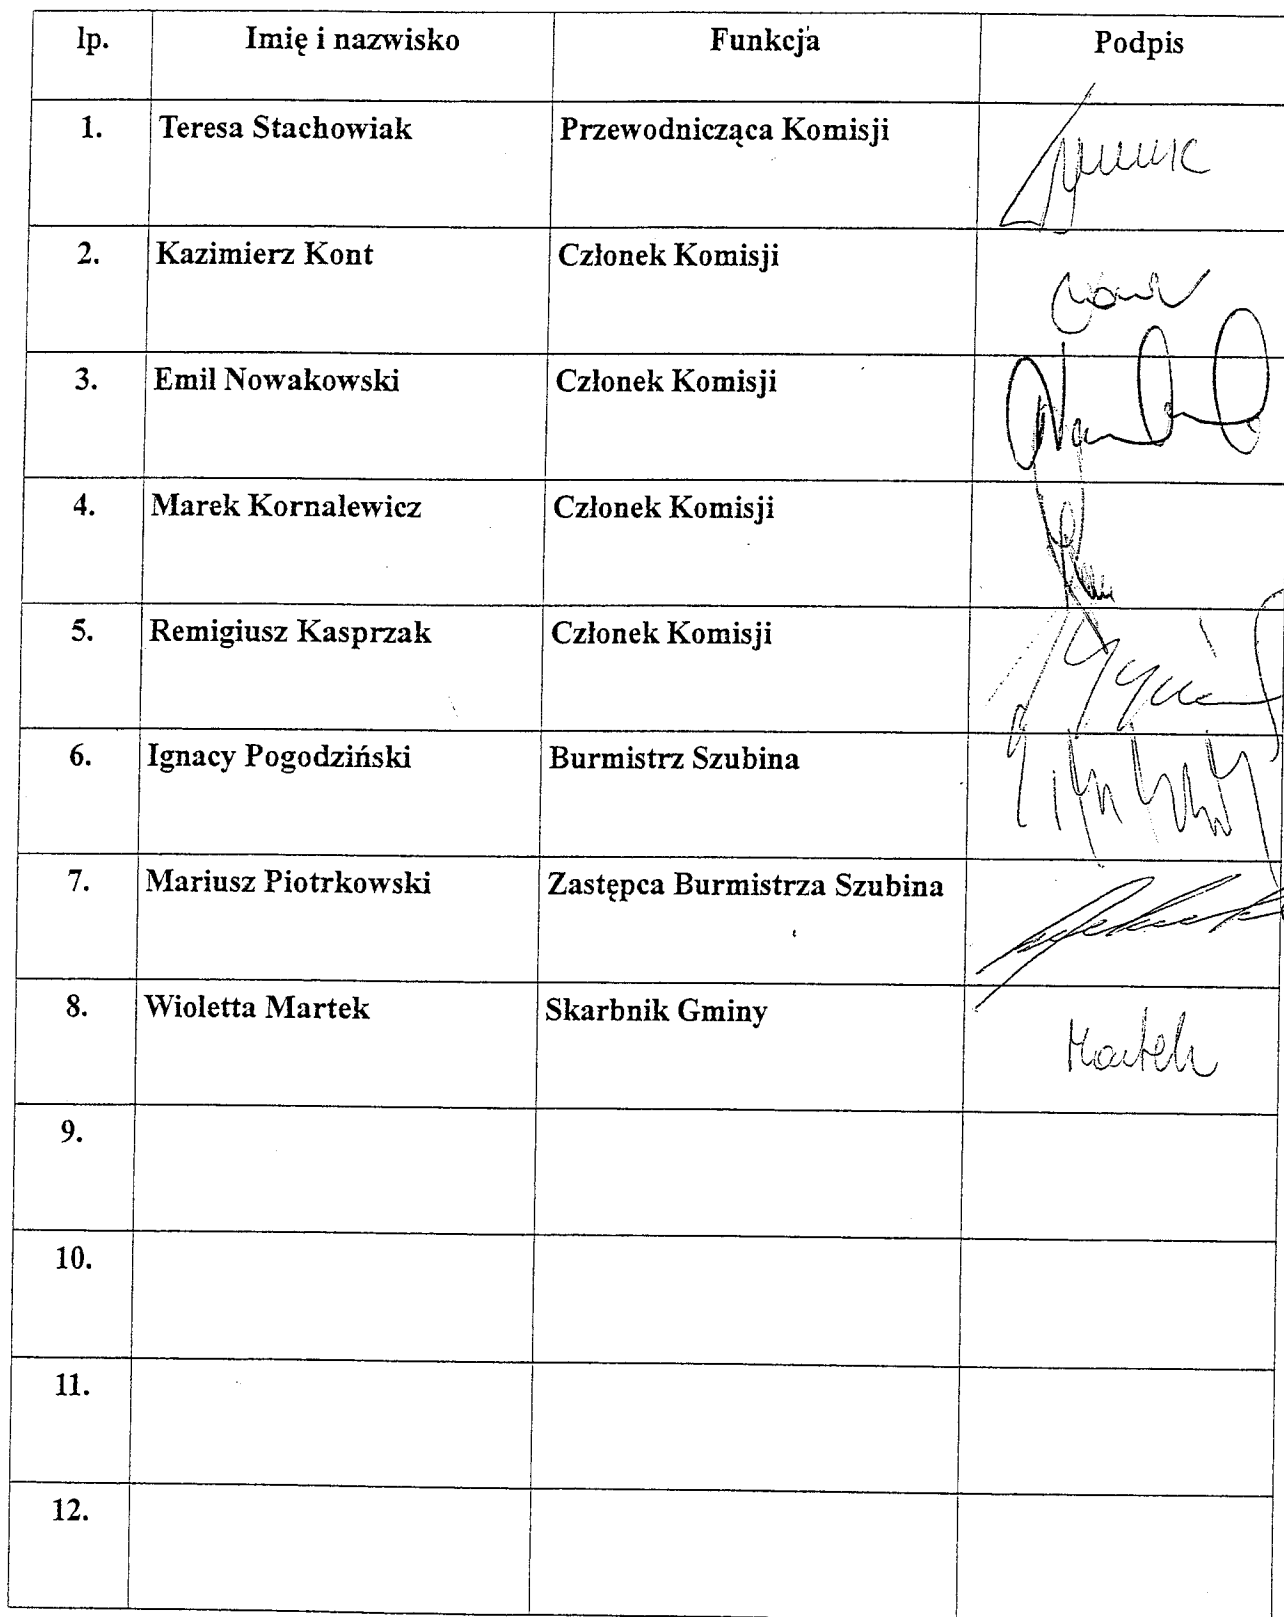 lp. Imię i nazwisko Funkcja Podpis
1. Teresa Stachowiak Przewodnicząca Komisji
2. Kazimierz Kont Członek Komisji
3. Emil Nowakowski Członek Komisji
4. Marek Kornalewicz Członek Komisji
5. Remigiusz Kasprzak Członek Komisji
6. Ignacy Pogodziński Burmistrz Szubina
7. Mariusz Piotrkowski Zastępca Burmistrza Szubina
8. Wioletta Martek Skarbnik Gminy Martek
9.
10.
11.
12.